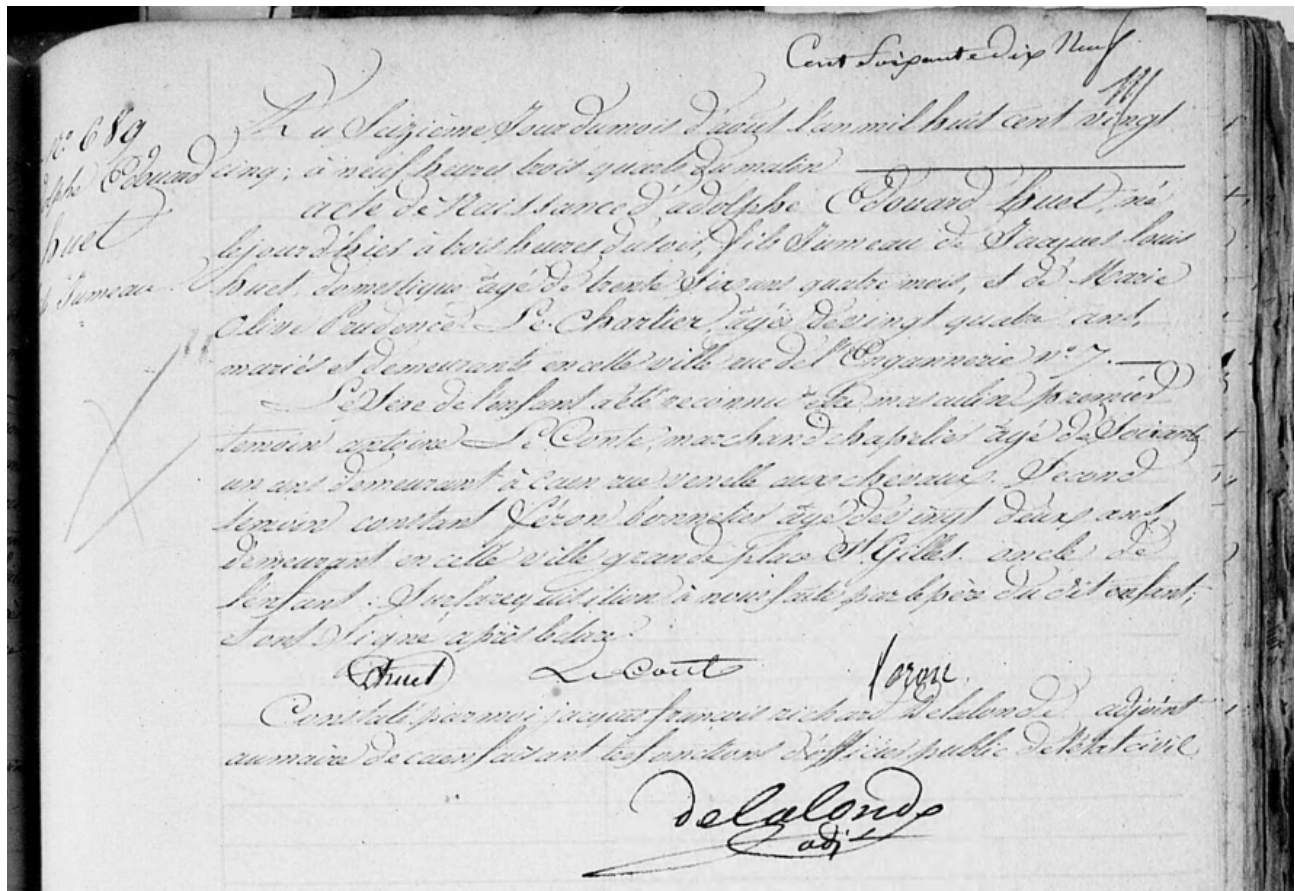 Cent Soixante dix Neuf
n° 689
Edouard
huet
Jumeau
Du Seizième Jour du mois d'aout l'an mil huit cent vingt
cinq, à neuf heures trois quarts du matin
acte de Naissance d'adolphe Edouard huet, né
le jour d'hier à trois heures du soir, fils Jumeau de Jacques louis
huet, domestique âgé de trente Six ans quatre mois, et de Marie
Prudence Le Chartier, âgée de vingt quatre ans,
mariés et demeurants en cette ville rue de l'Engannerie n° 7.
Le Sexe de l'enfant a été reconnu être masculin premier
temoin antoine Le Conte, marchand chapelier âgé de Soixante
un ans demeurant à Caen rue venelle aux chevaux. Second
temoin constant féron bonnetier âgé de vingt deux ans
demeurant en cette ville grande place St Gilles. oncle de
l'enfant. Sur la requisition à nous faite par le père du dit enfant,
et ont Signé après lecture.
huet Le Cont feron
Constaté par moi jacques françois richard Delalonde adjoint
au maire de caen faisant les fonctions d'officier public de l'état civil
delalonde
adjt